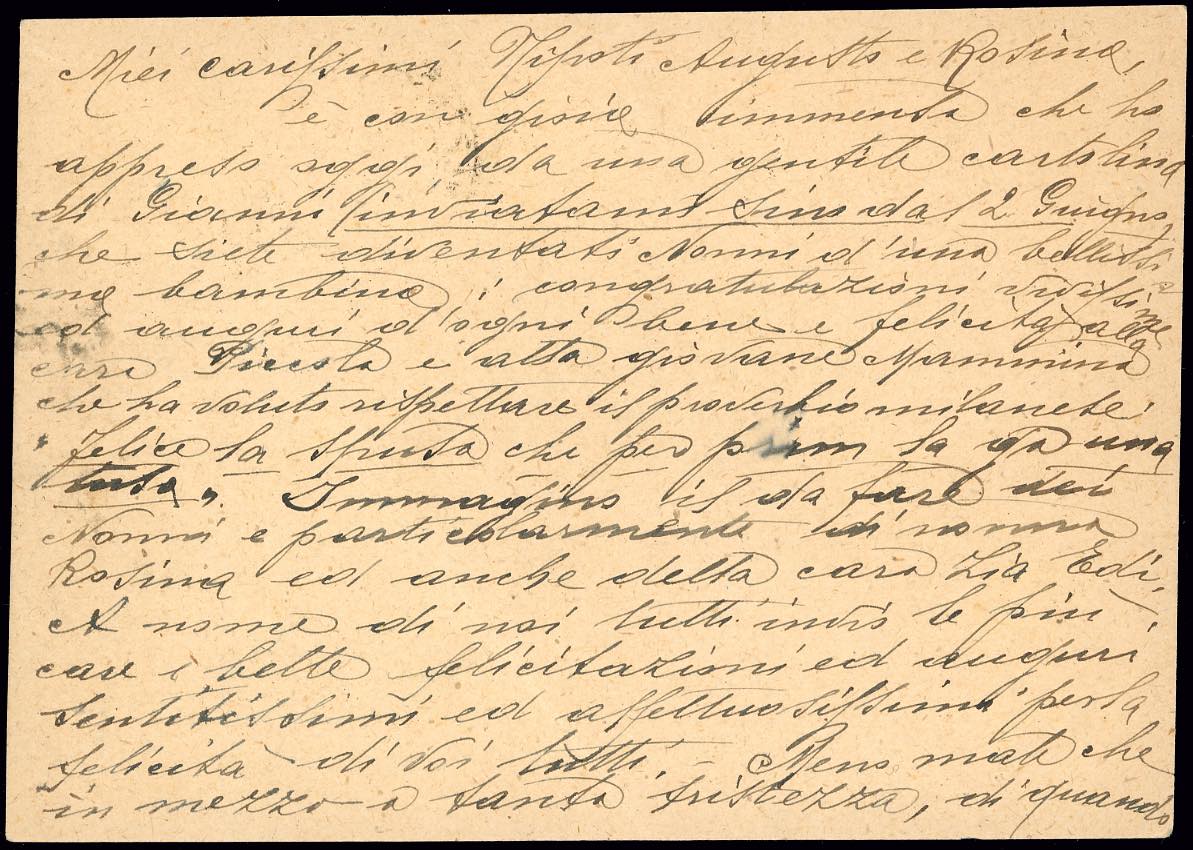 Miei carissimi Nipoti Augusto e Rosina,
è con gioia immensa che ho
appreso oggi da una gentile cartolina
di Gianni (inviatami sino dal 2 Giugno,
che siete diventati Nonni d'una bellissi-
ma bambina; congratulazioni vivissime
ed auguri d'ogni bene e felicità alla
cara Piccola e alla giovane Mammina
che ha voluto rispettare il proverbio milanese:
"felice la sposa che per prim la ga una
tosa". Immagino il da fare dei
Nonni e particolarmente di nonna
Rosina ed anche della cara Zia Edi.
A nome di noi tutti invio le più
care e belle felicitazioni ed auguri
sentitissimi ed affettuosissimi per la
felicità di voi tutti. - Meno male che
in mezzo a tanta tristezza, di quando